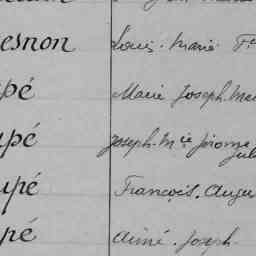 esnon Louis. Marie
pé Marie Joseph. Ma
upé Joseph. Mie Jérome
Jul
upé François. Augu
pé Aimé. Joseph.